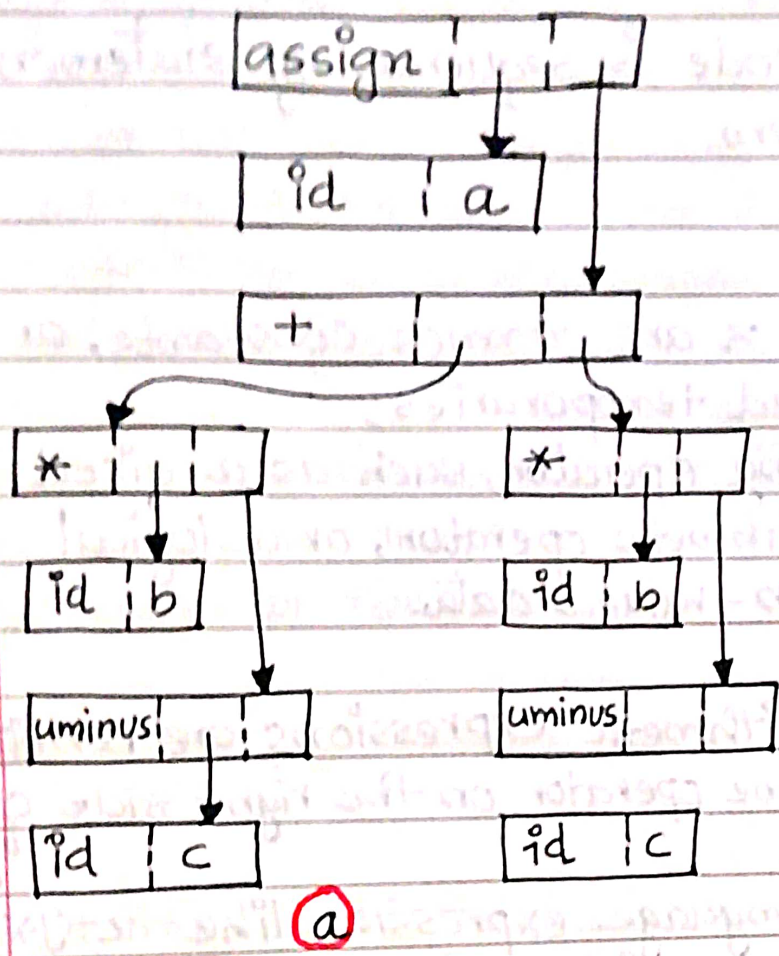 assign
id a
+
* *
id b id b
uminus uminus
id c id c
a